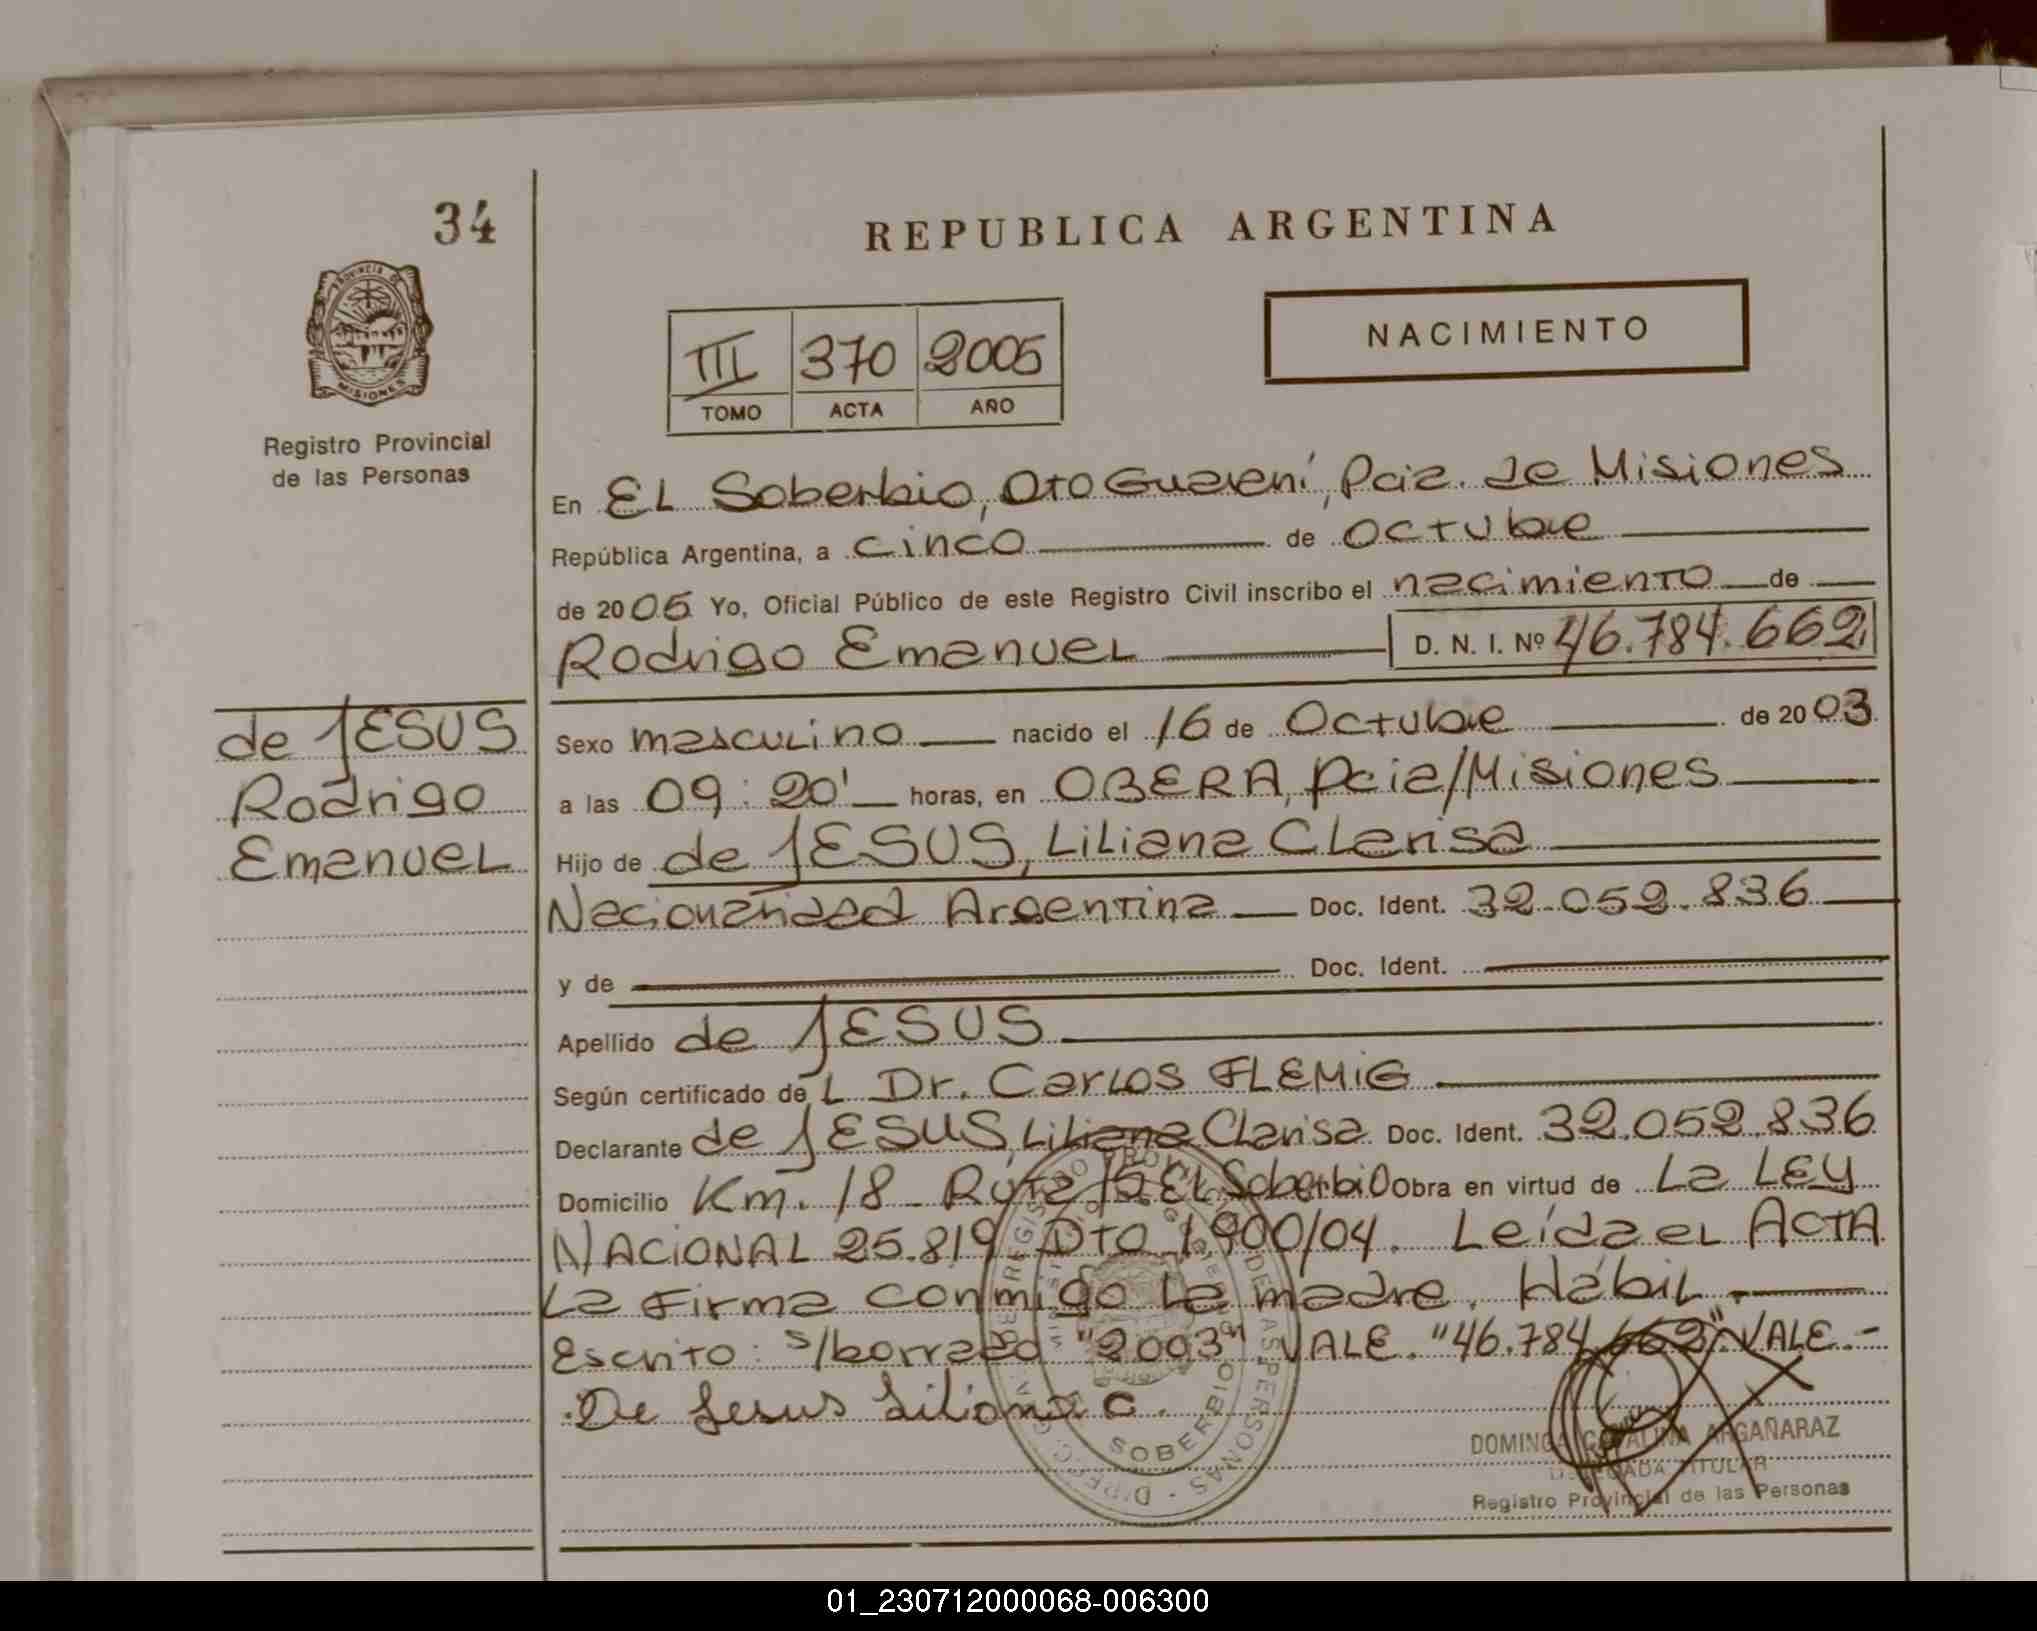 34
REPUBLICA ARGENTINA
PROVINCIA DE
MISIONES
III 370 2005
TOMO ACTA AÑO
NACIMIENTO
Registro Provincial
de las Personas
En EL Soberbio, Dto Guaraní, Pcia. de Misiones
República Argentina, a cinco de Octubre
de 2005 Yo, Oficial Público de este Registro Civil inscribo el nacimiento de
Rodrigo Emanuel D. N. I. Nº 46.784.662
de JESUS
Rodrigo
Emanuel
Sexo masculino nacido el 16 de Octubre de 2003
a las 09:20' horas, en OBERA, Pcia/Misiones
Hijo de de JESUS, Liliana Clarisa
Nacionalidad Argentina Doc. Ident. 32.052.836
y de Doc. Ident.
Apellido de JESUS
Según certificado de L Dr. Carlos FLEMIG
Declarante de JESUS, Liliana Clarisa Doc. Ident. 32.052.836
Domicilio Km. 18 - Ruta El Soberbio Obra en virtud de La LEY
NACIONAL 25.819 DTO 1.900/04. Leída el ACTA
La Firma conmigo la madre. Hábil
Escrito: s/borrado "2003" VALE. "46.784.662" VALE.-
De Jesus Liliana C.
SOBERBIO
DOMINGA CATALINA ARGAÑARAZ
DELEGADA TITULAR
Registro Provincial de las Personas
01_230712000068-006300